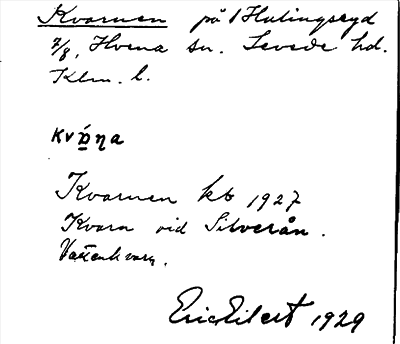 Kvarnen på 1 Hulingsryd
7/8, Hvena sn. Sevede hd.
Klm. l.
Kvarnen kb 1927
Kvarn vid Silverån.
Vattenkvarn.
Eric Eilert 1929